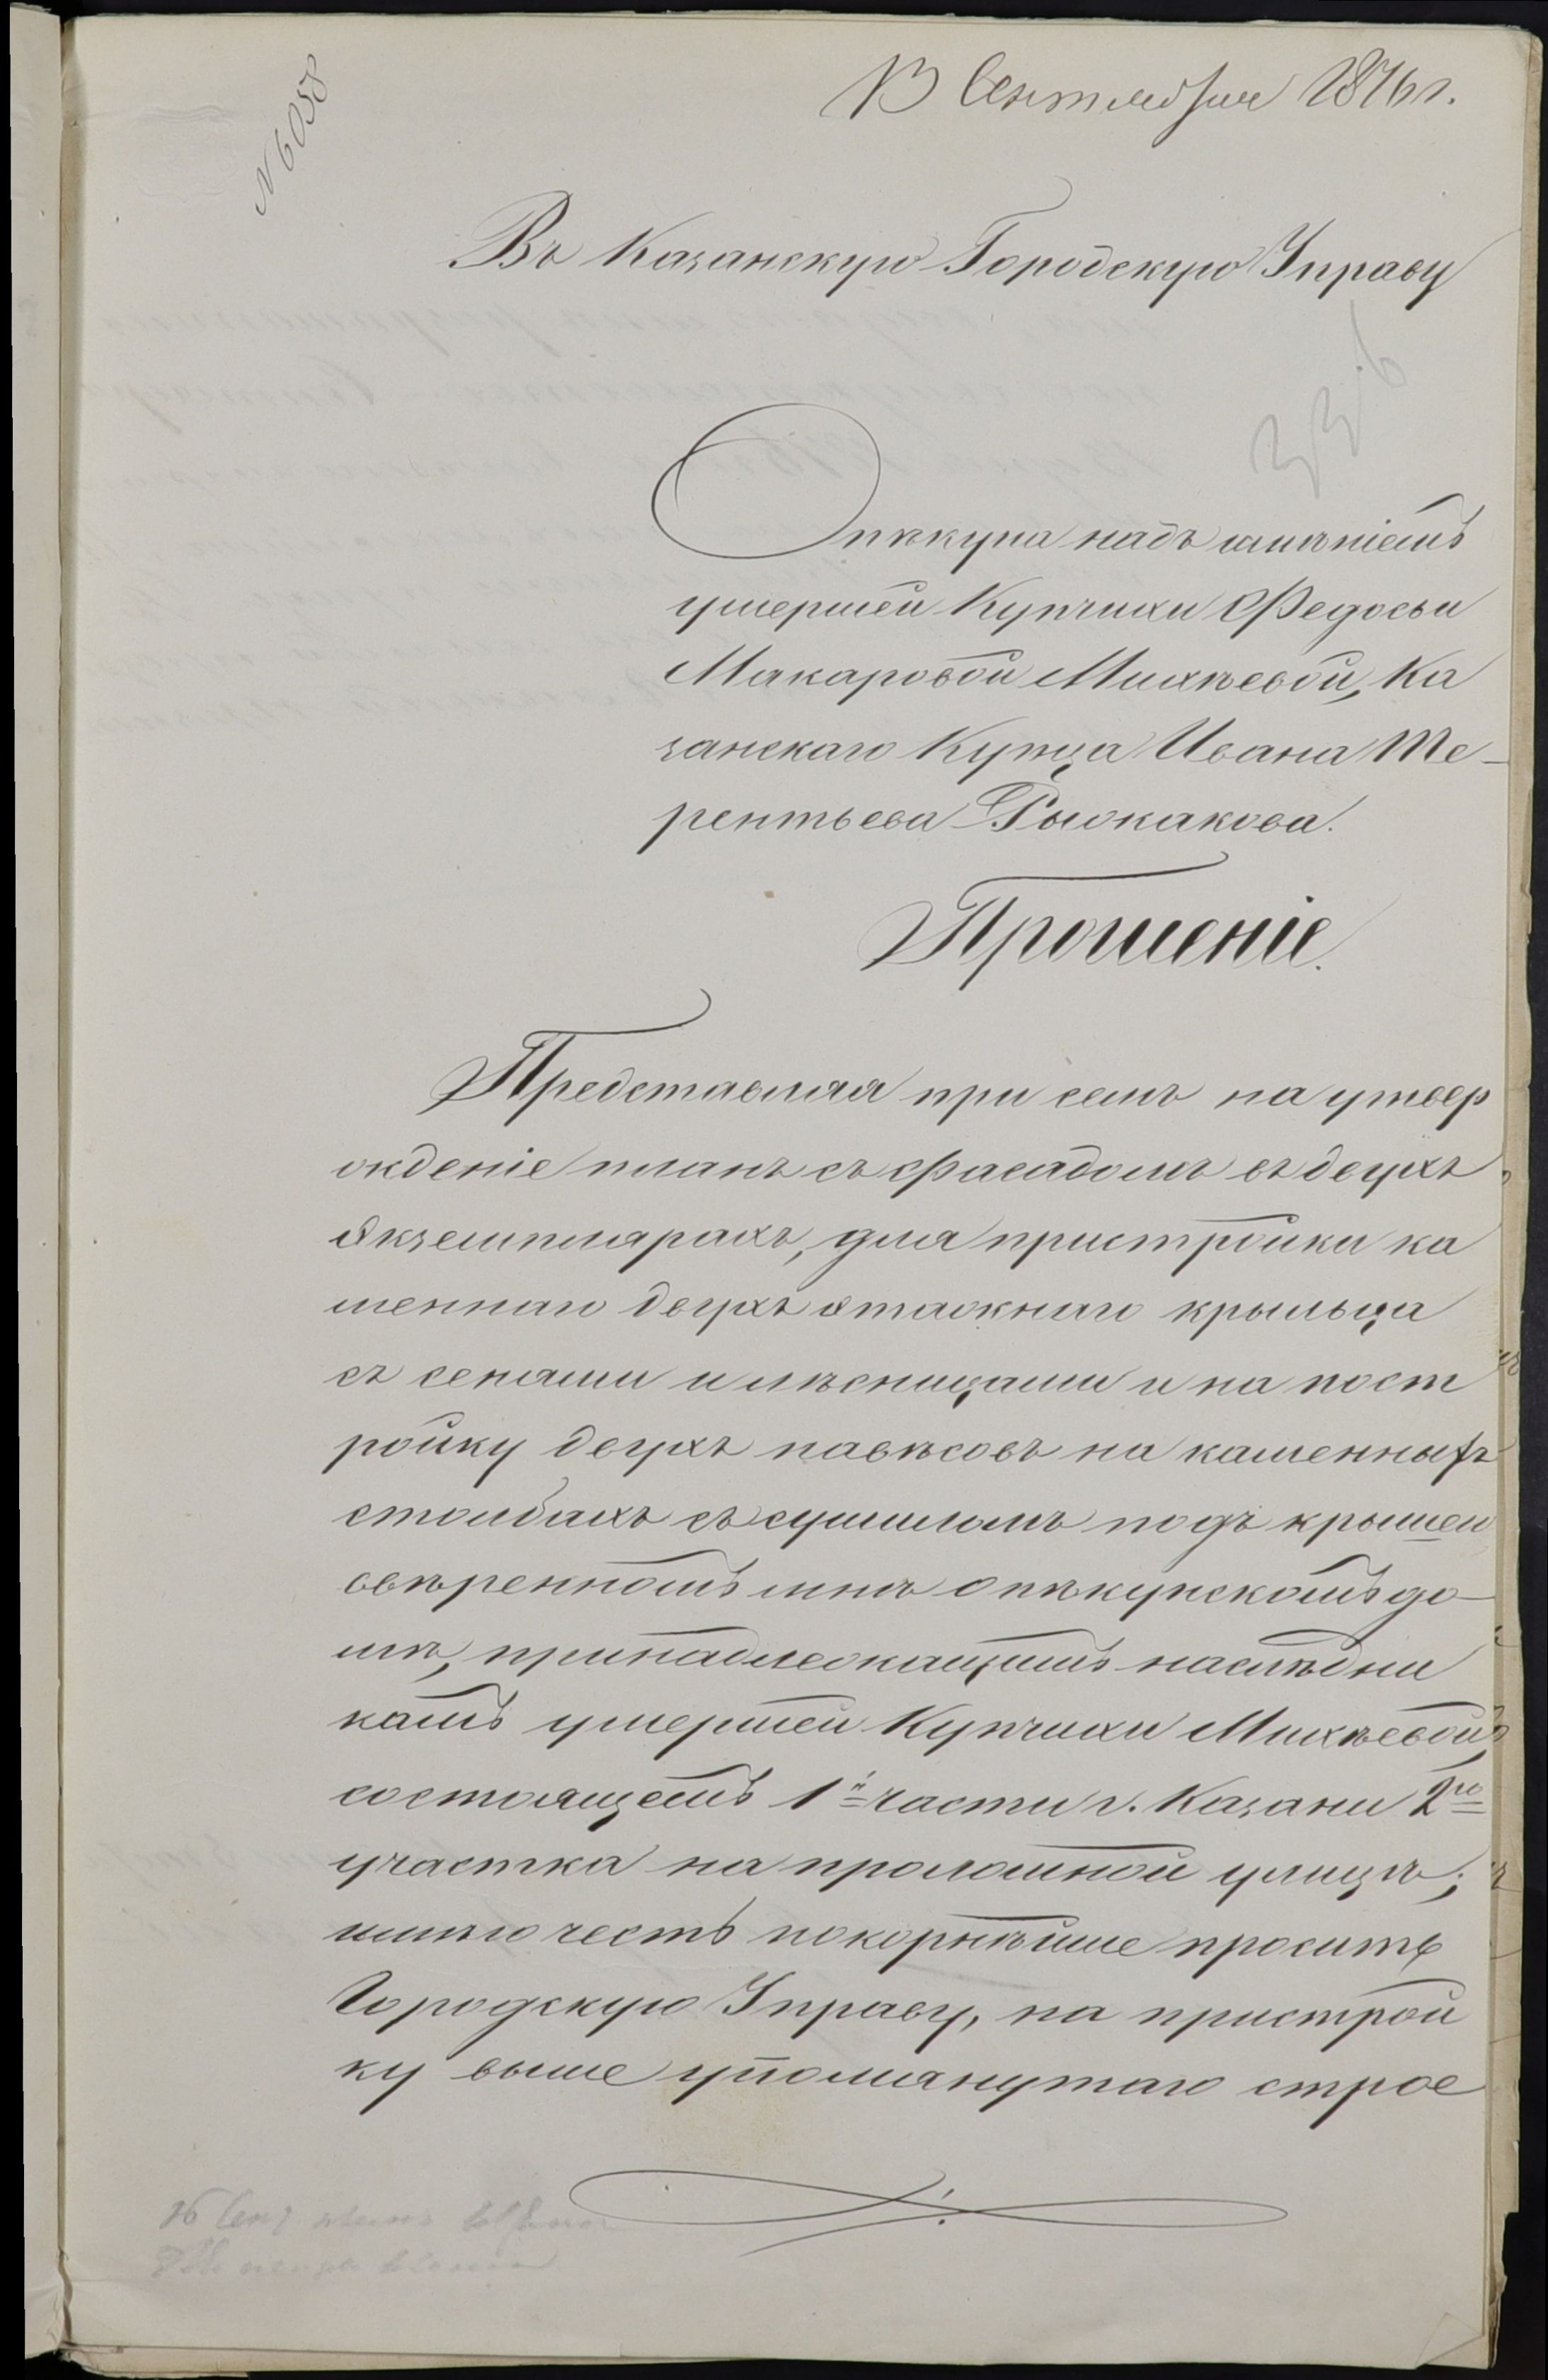 13 Сентября 1876 г.
N 6058
Въ Казанскую Городскую Управу
Опѣкуна надъ имѣніемъ
умершей Купчихи Федосьи
Макаровой Михѣевой, Ка
занскаго Купца Ивана Те-
рентьева Рыжакова.
Прошеніе.
Представляя при семъ на утвер
жденіе планъ съ фасадомъ въ двухъ
экземплярахъ, для пристройки ка
меннаго двухъ этажнаго крыльца
съ сенями и лѣсницами и на пост
ройку двухъ навѣсовъ на каменныхъ
столбахъ съ сушиломъ подъ крышей
ввѣренномъ мнѣ опѣкунскомъ до-
мѣ, принадлежащимъ наслѣдни
камъ умершей Купчихи Михѣевой,
состоящемъ 1й части г. Казани 2го
участка на проломной улицѣ;
имѣю честь покорнѣйше просить
Городскую Управу, на пристрой
ку выше упомянутаго строе